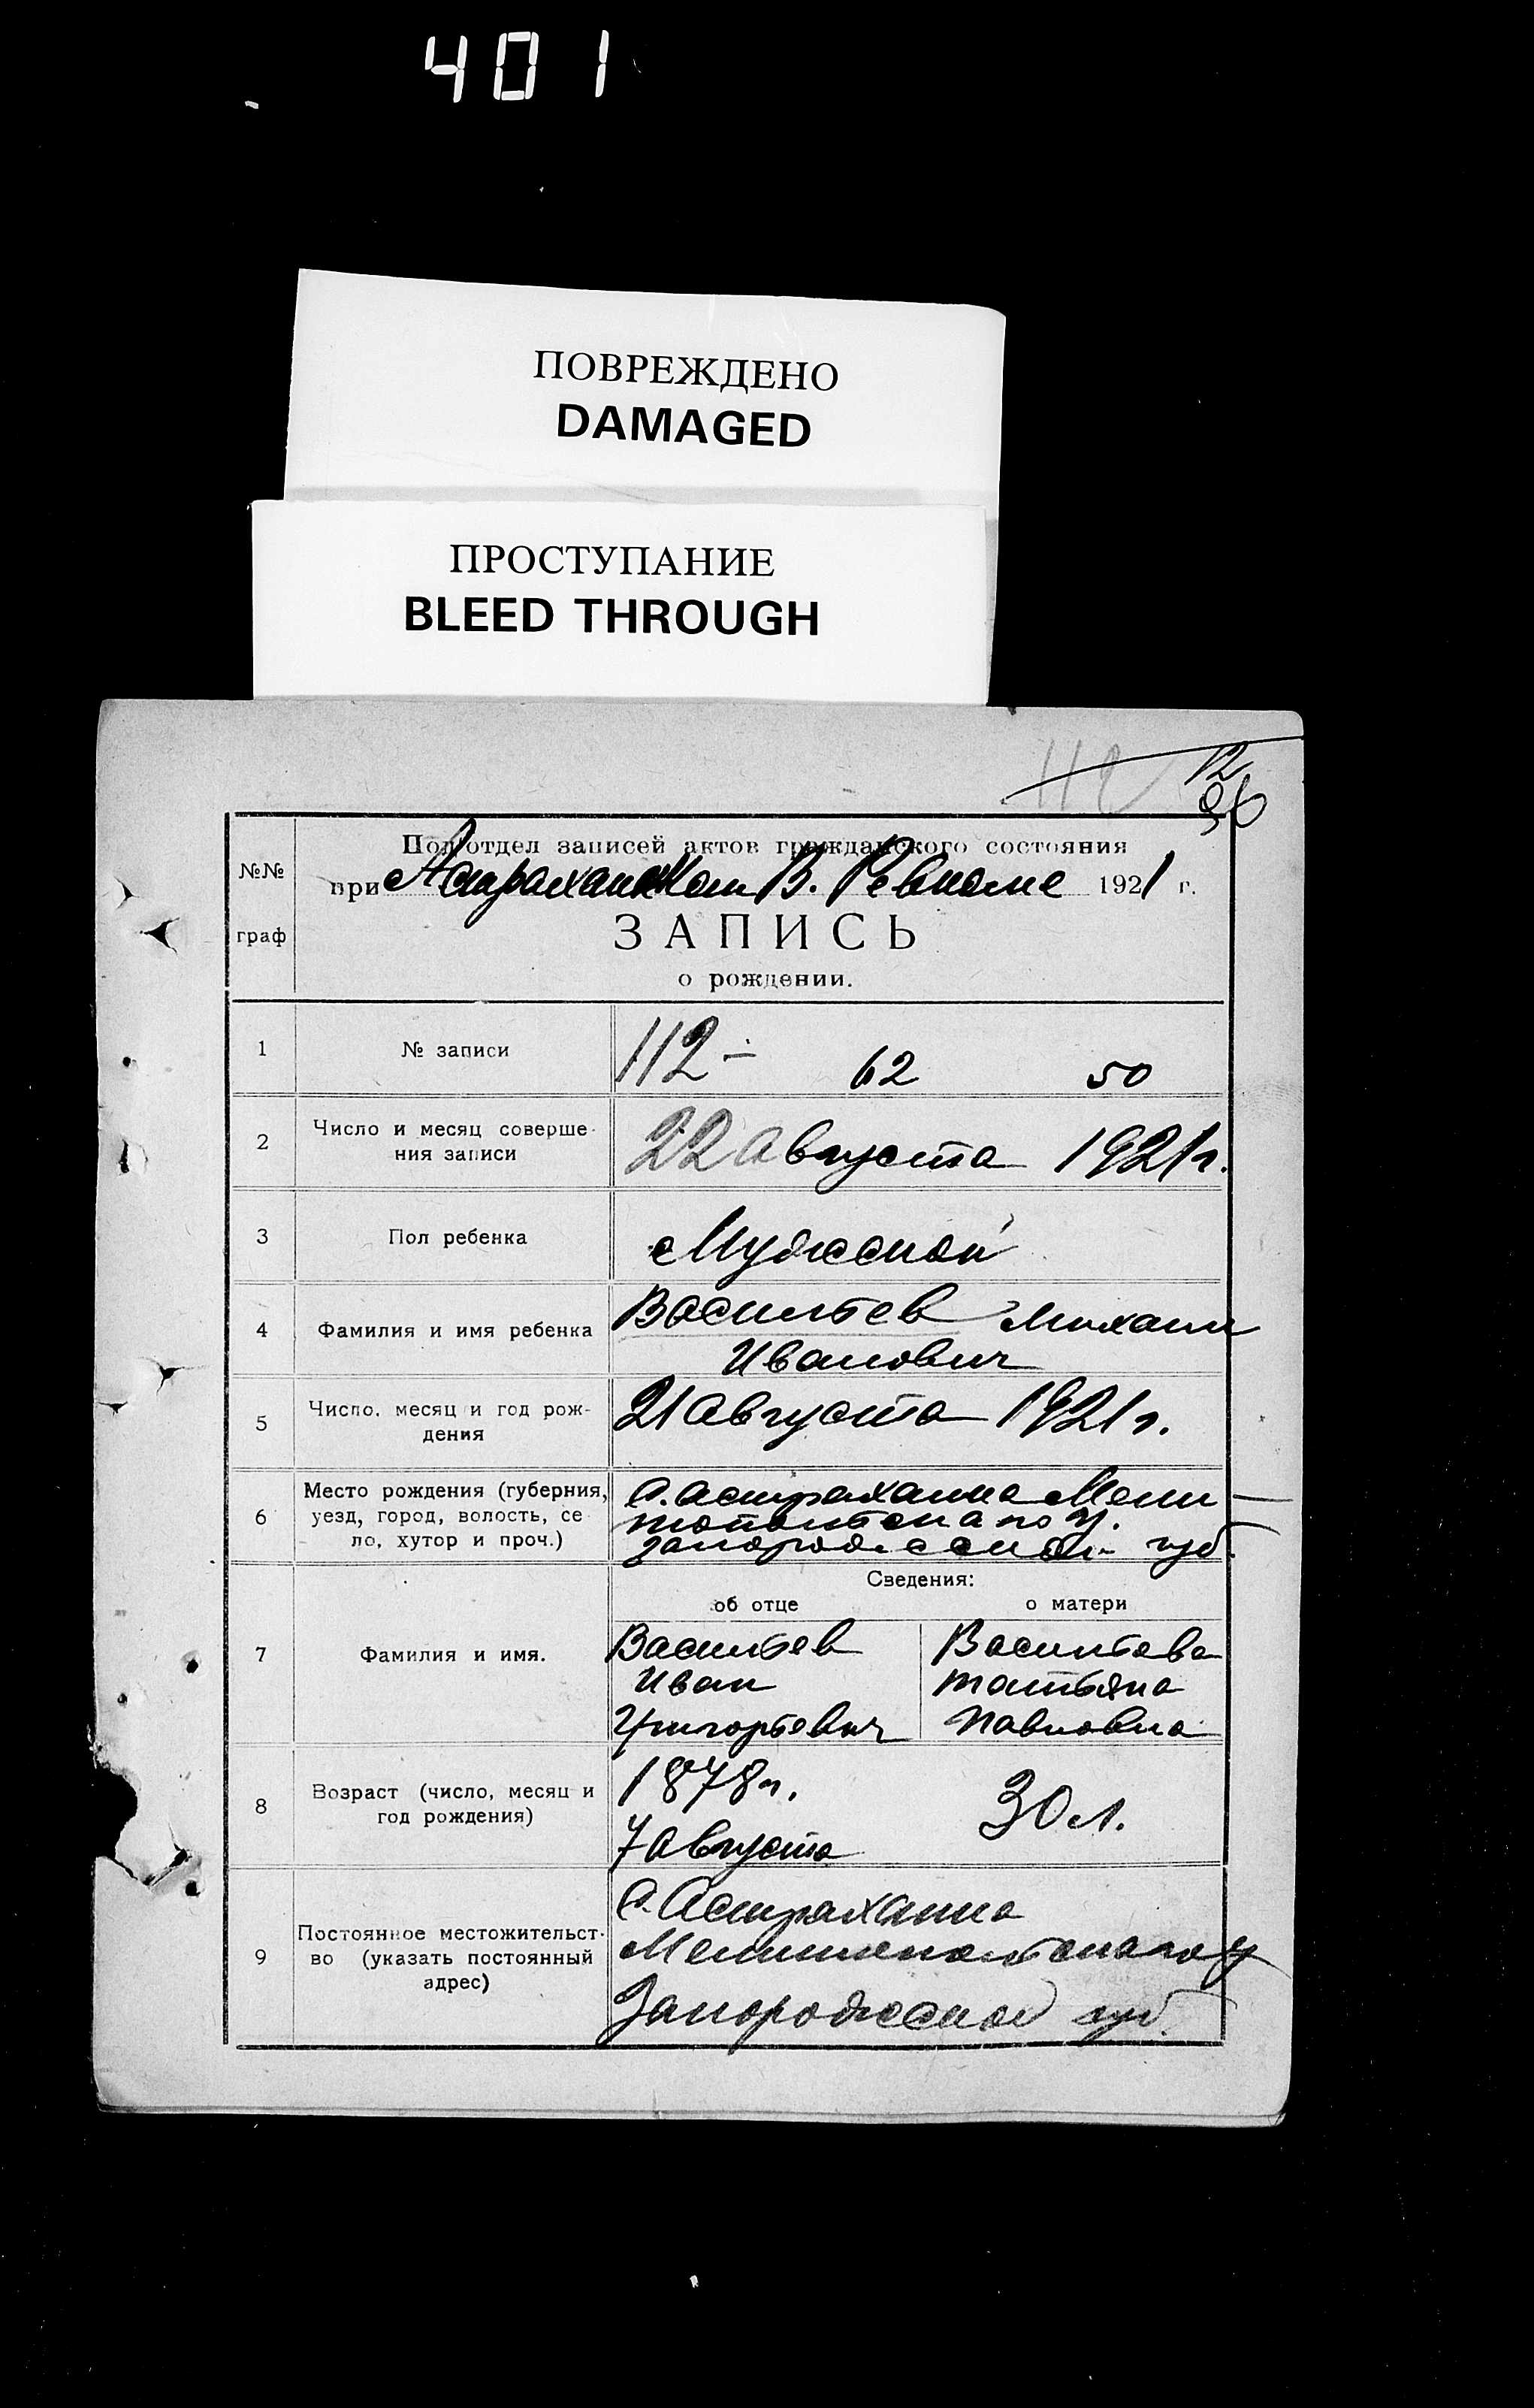 401
ПОВРЕЖДЕНО
DAMAGED
ПРОСТУПАНИЕ
BLEED THROUGH
112 12
№№ граф
Подотдел записей актов гражданского состояния
при Астраханском В. Ревкоме 1921 г.
ЗАПИСЬ
о рождении.
1 № записи 112- 62 50
2 Число и месяц соверше-
ния записи 22 Августа 1921 г.
3 Пол ребенка Мужской
4 Фамилия и имя ребенка Васильев Михаил
Иванович
5 Число, месяц и год рож-
дения 21 Августа 1921 г.
6 Место рождения (губерния,
уезд, город, волость, се
ло, хутор и проч.) С. Астраханка Мели
топольского у.
Запорожской губ.
Сведения:
об отце о матери
7 Фамилия и имя. Васильев Васильева
Иван Татьяна
Григорьевич Павловна
8 Возраст (число, месяц и
год рождения) 1878 г. 30 л.
7 Августа
9 Постоянное местожительст-
во (указать постоянный
адрес) С. Астраханка
Мелитопольского у
Запорожской губ.